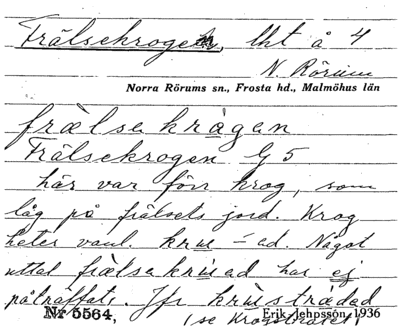 Frälsekrogen, lht å 4
N. Rörum
Norra Rörums sn., Frosta hd., Malmöhus län
frælsakrågan
Frälsekrogen G5
här var förr krog, som
låg på frälsets jord. Krog
heter vanl. kru -ad. Något
uttal frælsakruad har ej
påträffats. Jfr krustradad
Nr 5564, (se Krogstället) Erik Jehpsson, 1936